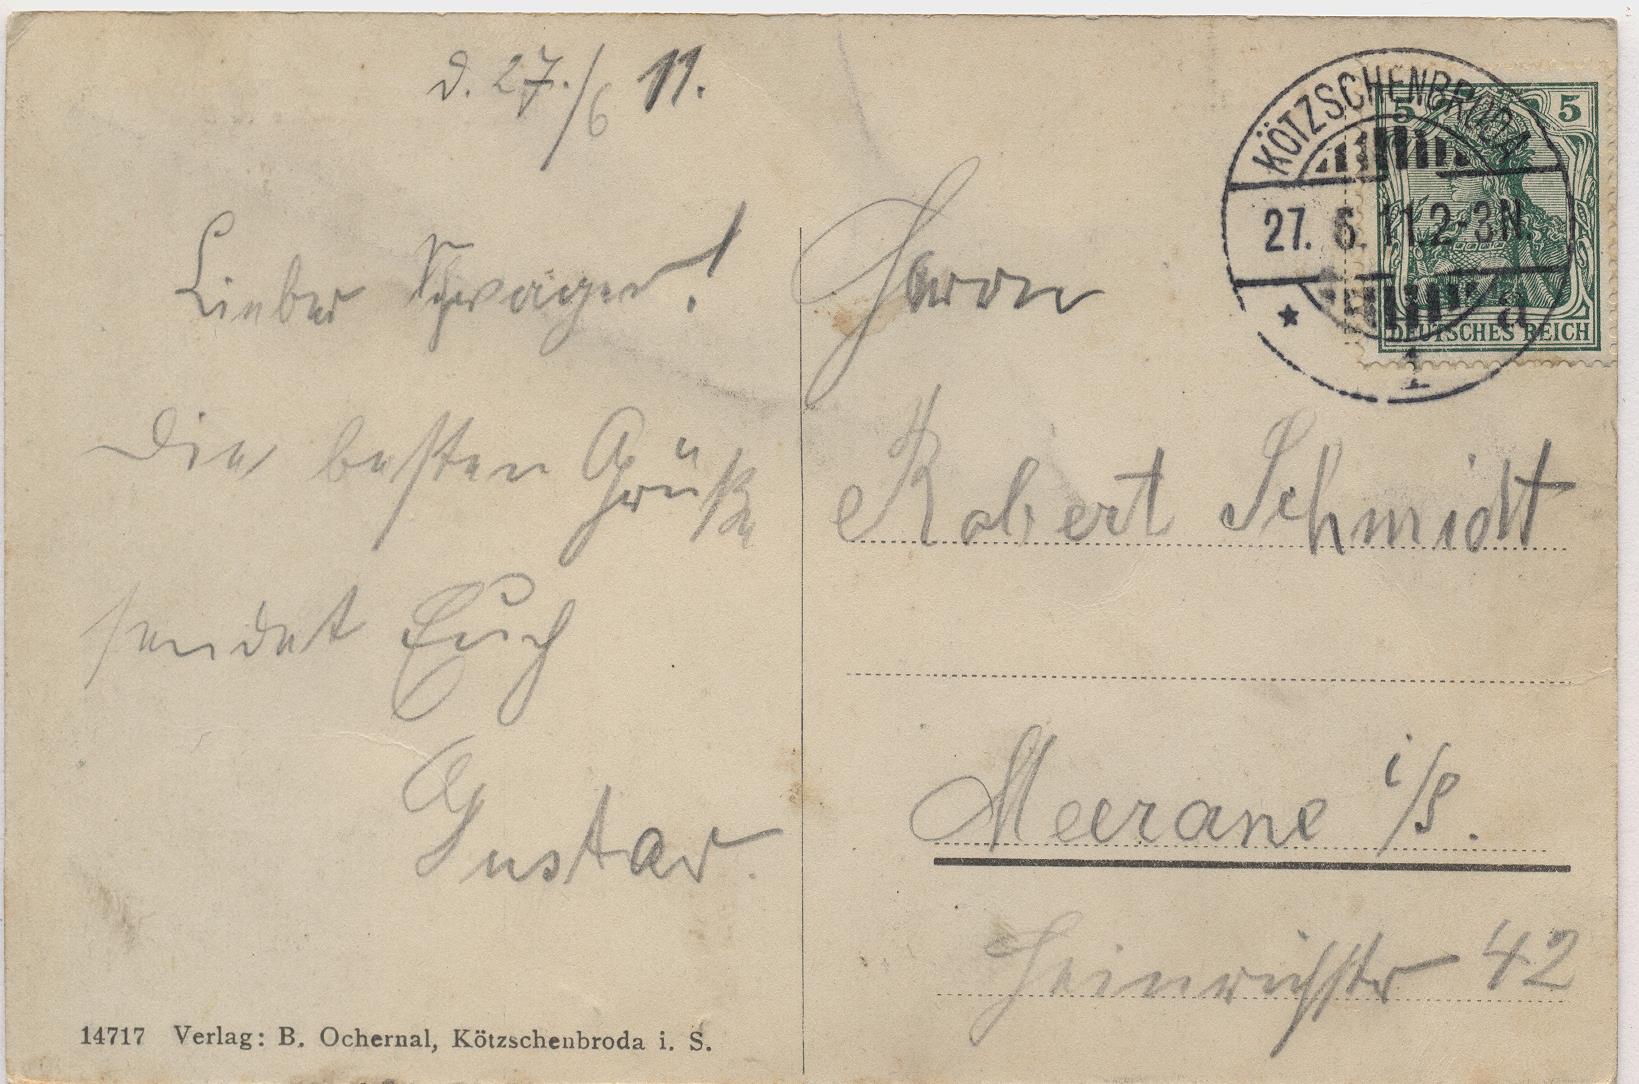 d. 27./6 11.
Lieber Schwager!
Die besten Grüße
sendet Euch
Gustav.
14717 Verlag: B. Ochernal, Kötzschenbroda i. S.
KÖTZSCHENBRODA
27. 6. 11. 2-3N.
* 1 a
5 5
DEUTSCHES REICH
Herrn
Robert Schmidt
Meerane i/S.
Heinrichstr 42